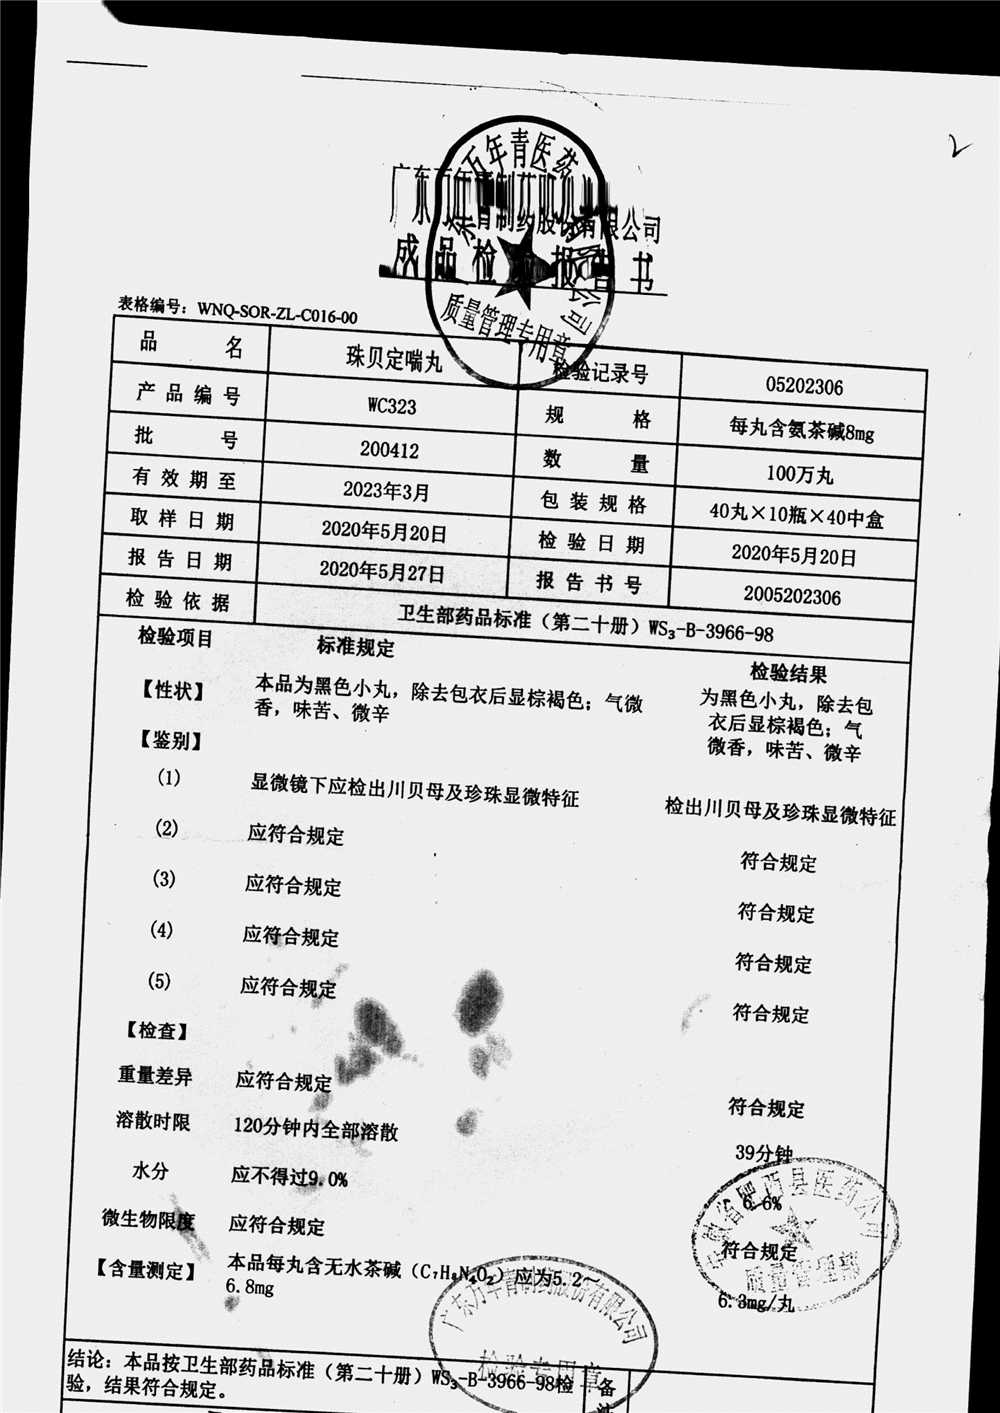 2
广东万年青制药股份有限公司
成品检验报告书
万年青医药
有限公司
质量管理专用章
表格编号：WNQ-SOR-ZL-C016-00
品 名 珠贝定喘丸 检验记录号 05202306
产品编号 WC323 规 格 每丸含氨茶碱8mg
批 号 200412 数 量 100万丸
有效期至 2023年3月 包装规格 40丸×10瓶×40中盒
取样日期 2020年5月20日 检验日期 2020年5月20日
报告日期 2020年5月27日 报告书号 2005202306
检验依据 卫生部药品标准（第二十册）WS₃-B-3966-98
检验项目 标准规定 检验结果
【性状】 本品为黑色小丸，除去包衣后显棕褐色；气微 为黑色小丸，除去包
香，味苦、微辛 衣后显棕褐色；气
微香，味苦、微辛
【鉴别】
(1) 显微镜下应检出川贝母及珍珠显微特征 检出川贝母及珍珠显微特征
(2) 应符合规定 符合规定
(3) 应符合规定 符合规定
(4) 应符合规定 符合规定
(5) 应符合规定 符合规定
【检查】
重量差异 应符合规定 符合规定
溶散时限 120分钟内全部溶散 39分钟
水分 应不得过9.0% 6.6%
微生物限度 应符合规定 符合规定
【含量测定】 本品每丸含无水茶碱（C₇H₈N₄O₂）应为5.2～ 6.3mg/丸
6.8mg
县医药公司
质量管理
广东万年青制药股份有限公司
检验专用章
结论：本品按卫生部药品标准（第二十册）WS₃-B-3966-98检 备
验，结果符合规定。